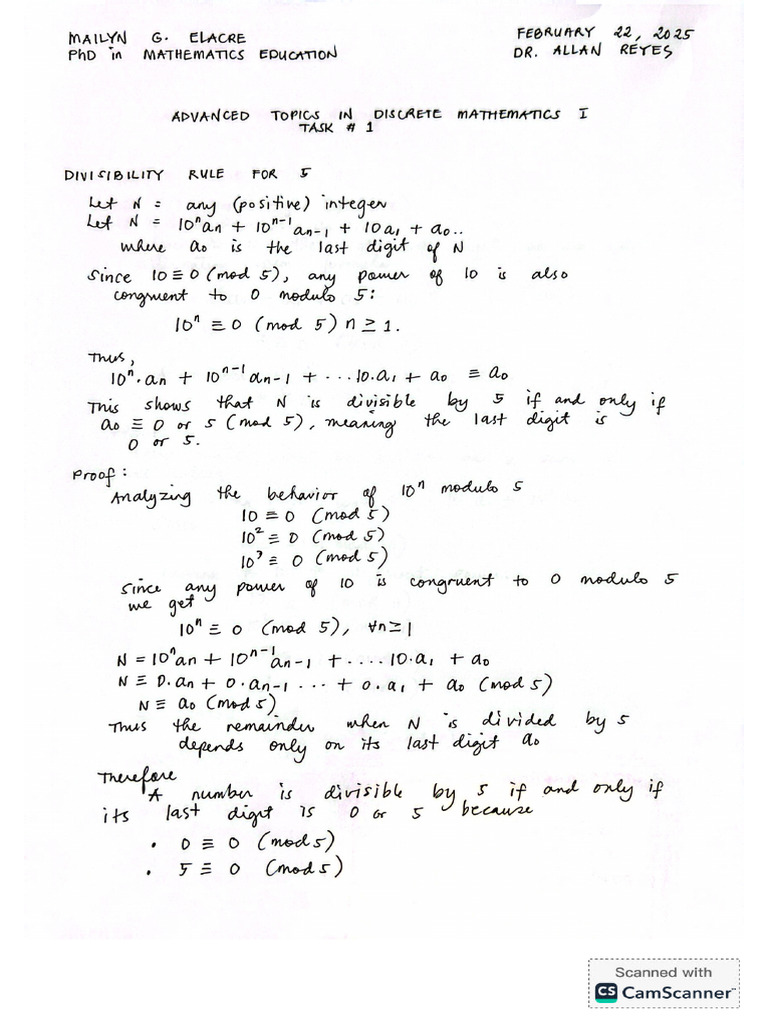 MAILYN G. ELACRE
FEBRUARY 22, 2025
PhD in MATHEMATICS EDUCATION
DR. ALLAN REYES
ADVANCED TOPICS IN DISCRETE MATHEMATICS I
TASK # 1
DIVISIBILITY RULE FOR 5
Let N = any (positive) integer
Let N = 10ⁿaₙ + 10ⁿ⁻¹aₙ₋₁ + 10a₁ + a₀..
where a₀ is the last digit of N
Since 10 ≡ 0 (mod 5), any power of 10 is also
congruent to 0 modulo 5:
10ⁿ ≡ 0 (mod 5) n ≥ 1.
Thus,
10ⁿ·aₙ + 10ⁿ⁻¹aₙ₋₁ + ...10.a₁ + a₀ ≡ a₀
This shows that N is divisible by 5 if and only if
a₀ ≡ 0 or 5 (mod 5), meaning the last digit is
0 or 5.
Proof:
Analyzing the behavior of 10ⁿ modulo 5
10 ≡ 0 (mod 5)
10² ≡ 0 (mod 5)
10³ ≡ 0 (mod 5)
Since any power of 10 is congruent to 0 modulo 5
we get
10ⁿ ≡ 0 (mod 5), ∀n≥1
N = 10ⁿaₙ + 10ⁿ⁻¹aₙ₋₁ + ....10.a₁ + a₀
N ≡ 0.aₙ + 0.aₙ₋₁ ... + 0.a₁ + a₀ (mod 5)
N ≡ a₀ (mod 5)
Thus the remainder when N is divided by 5
depends only on its last digit a₀
Therefore
A number is divisible by 5 if and only if
its last digit is 0 or 5 because
• 0 ≡ 0 (mod 5)
• 5 ≡ 0 (mod 5)
Scanned with
CS CamScanner™